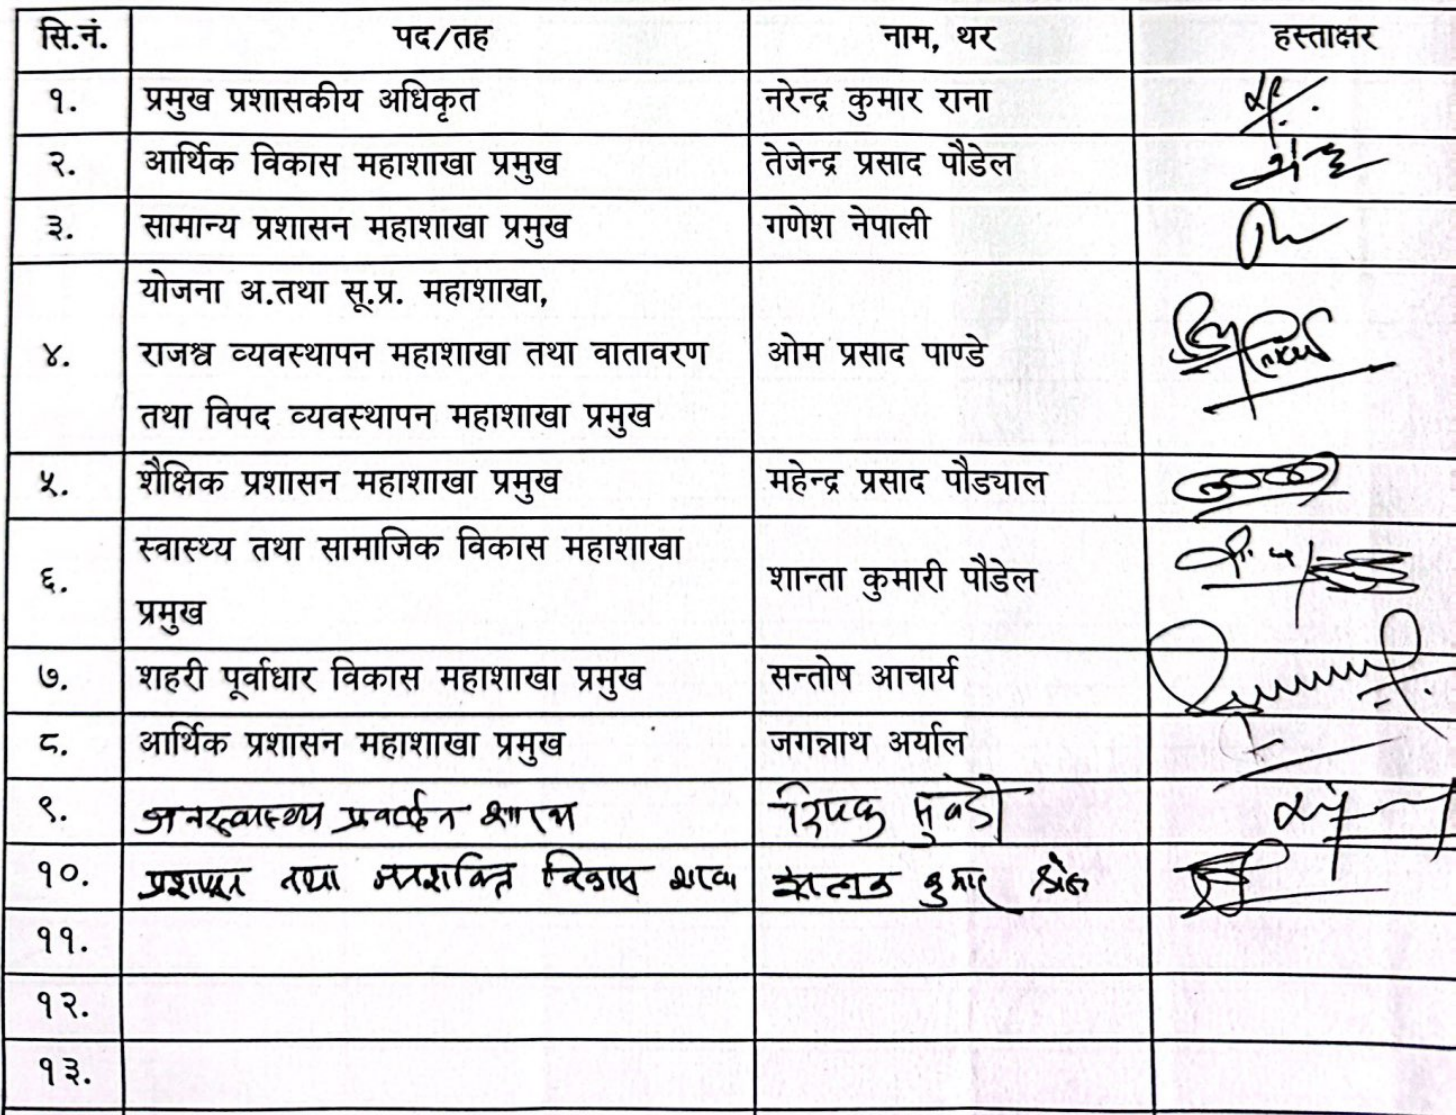 सि.नं. पद/तह नाम, थर हस्ताक्षर
१. प्रमुख प्रशासकीय अधिकृत नरेन्द्र कुमार राना
२. आर्थिक विकास महाशाखा प्रमुख तेजेन्द्र प्रसाद पौडेल
३. सामान्य प्रशासन महाशाखा प्रमुख गणेश नेपाली
योजना अ.तथा सू.प्र. महाशाखा,
४. राजश्व व्यवस्थापन महाशाखा तथा वातावरण ओम प्रसाद पाण्डे
तथा विपद व्यवस्थापन महाशाखा प्रमुख
५. शैक्षिक प्रशासन महाशाखा प्रमुख महेन्द्र प्रसाद पौड्याल
स्वास्थ्य तथा सामाजिक विकास महाशाखा
६. शान्ता कुमारी पौडेल
प्रमुख
७. शहरी पूर्वाधार विकास महाशाखा प्रमुख सन्तोष आचार्य
८. आर्थिक प्रशासन महाशाखा प्रमुख जगन्नाथ अर्याल
९. जनस्वास्थ्य प्रवर्द्धन शाखा
१०. प्रशासन तथा जनशक्ति विकास शाखा कुमार
११.
१२.
१३.